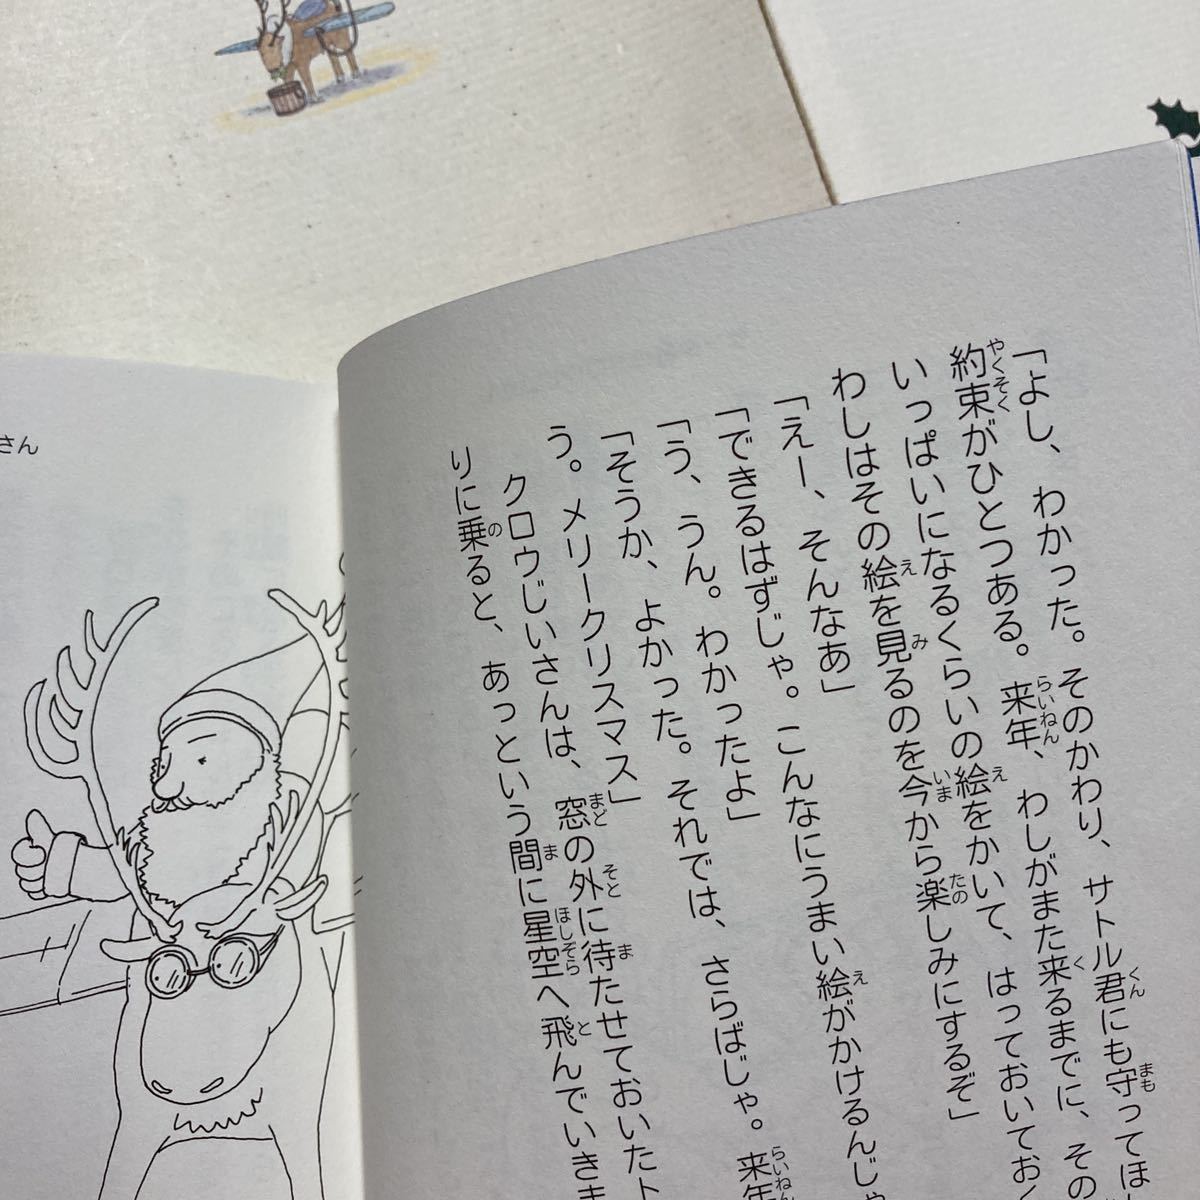 「よし、わかった。そのかわり、サトル君にも守ってほ
約束がひとつある。来年、わしがまた来るまでに、その
いっぱいになるくらいの絵をかいて、はっておいておく
わしはその絵を見るのを今から楽しみにするぞ」
「えー、そんなあ」
「できるはずじゃ。こんなにうまい絵がかけるんじゃ
「う、うん。わかったよ」
「そうか、よかった。それでは、さらばじゃ。来年
う。メリークリスマス」
クロウじいさんは、窓の外に待たせておいたト
りに乗ると、あっという間に星空へ飛んでいきま
さん